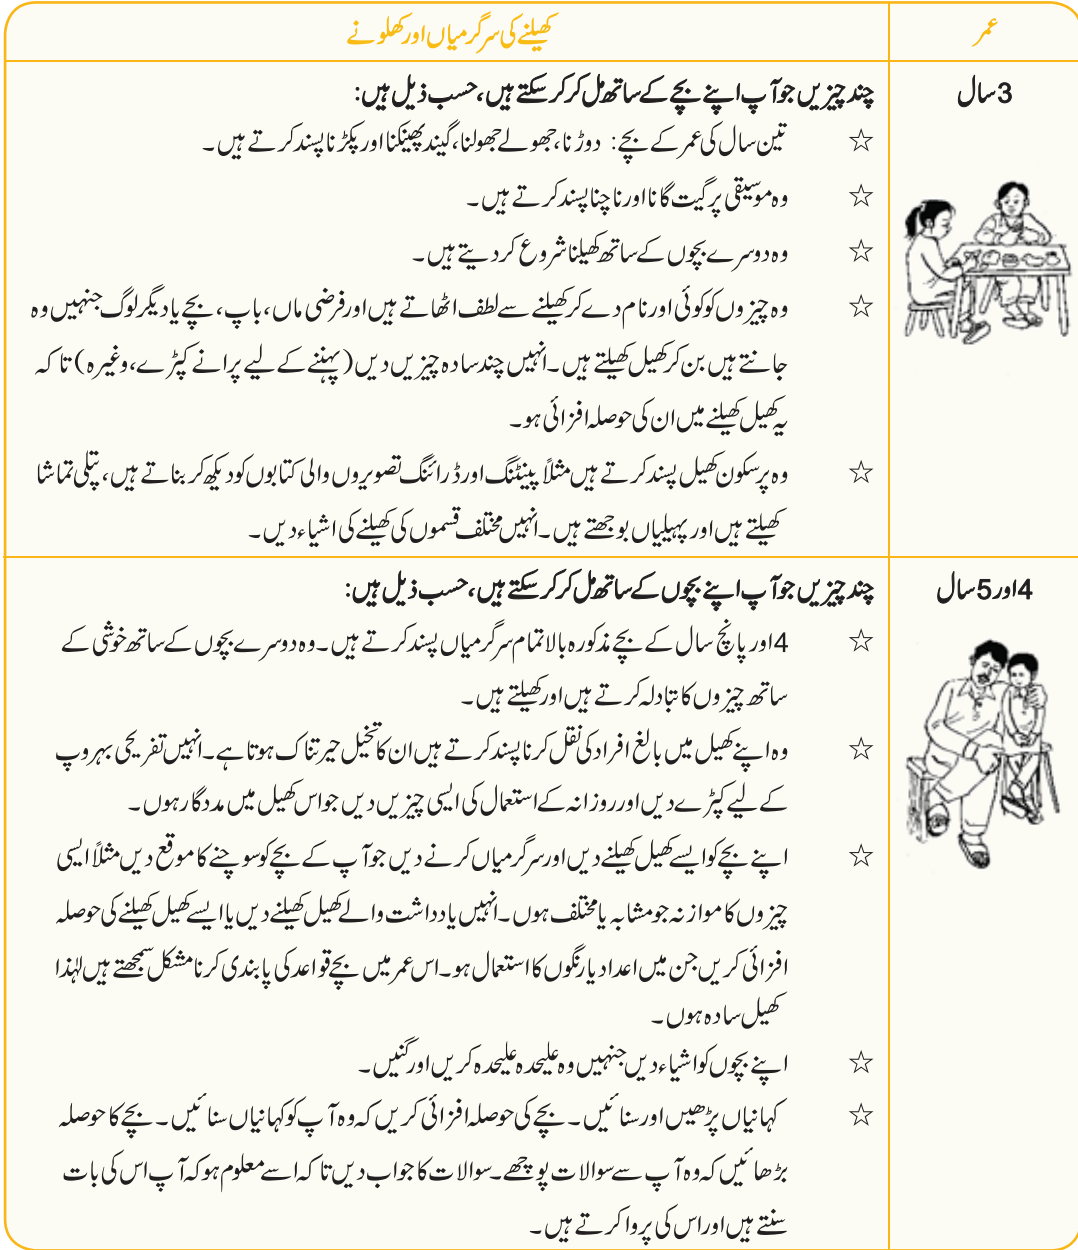 عمر
کھیلنے کی سرگرمیاں اور کھلونے
3 سال
چند چیزیں جو آپ اپنے بچے کے ساتھ مل کر کر سکتے ہیں، حسب ذیل ہیں:
☆ تین سال کی عمر کے بچے: دوڑنا، جھولے جھولنا، گیند پھینکنا اور پکڑنا پسند کرتے ہیں۔
☆ وہ موسیقی پر گیت گانا اور ناچنا پسند کرتے ہیں۔
☆ وہ دوسرے بچوں کے ساتھ کھیلنا شروع کر دیتے ہیں۔
☆ وہ چیزوں کو کوئی اور نام دے کر کھیلنے سے لطف اٹھاتے ہیں اور فرضی ماں، باپ، بچے یا دیگر لوگ جنہیں وہ
جانتے ہیں بن کر کھیل کھیلتے ہیں۔ انہیں چند سادہ چیزیں دیں (پہننے کے لیے پرانے کپڑے، وغیرہ) تا کہ
یہ کھیل کھیلنے میں ان کی حوصلہ افزائی ہو۔
☆ وہ پرسکون کھیل پسند کرتے ہیں مثلاً پینٹنگ اور ڈرائنگ تصویروں والی کتابوں کو دیکھ کر بناتے ہیں، پتلی تماشا
کھیلتے ہیں اور پہیلیاں بوجھتے ہیں۔ انہیں مختلف قسموں کی کھیلنے کی اشیاء دیں۔
4 اور 5 سال
چند چیزیں جو آپ اپنے بچوں کے ساتھ مل کر کر سکتے ہیں، حسب ذیل ہیں:
☆ 4 اور پانچ سال کے بچے مذکورہ بالا تمام سرگرمیاں پسند کرتے ہیں۔ وہ دوسرے بچوں کے ساتھ خوشی کے
ساتھ چیزوں کا تبادلہ کرتے ہیں اور کھیلتے ہیں۔
☆ وہ اپنے کھیل میں بالغ افراد کی نقل کرنا پسند کرتے ہیں ان کا تخیل حیرتناک ہوتا ہے۔ انہیں تفریحی بہروپ
کے لیے کپڑے دیں اور روزانہ کے استعمال کی ایسی چیزیں دیں جو اس کھیل میں مددگار ہوں۔
☆ اپنے بچے کو ایسے کھیل کھیلنے دیں اور سرگرمیاں کرنے دیں جو آپ کے بچے کو سوچنے کا موقع دیں مثلاً ایسی
چیزوں کا موازنہ جو مشابہ یا مختلف ہوں۔ انہیں یادداشت والے کھیل کھیلنے دیں یا ایسے کھیل کھیلنے کی حوصلہ
افزائی کریں جن میں اعداد یا رنگوں کا استعمال ہو۔ اس عمر میں بچے قواعد کی پابندی کرنا مشکل سمجھتے ہیں لہٰذا
کھیل سادہ ہوں۔
☆ اپنے بچوں کو اشیاء دیں جنہیں وہ علیحدہ علیحدہ کریں اور گنیں۔
☆ کہانیاں پڑھیں اور سنائیں۔ بچے کی حوصلہ افزائی کریں کہ وہ آپ کو کہانیاں سنائیں۔ بچے کا حوصلہ
بڑھائیں کہ وہ آپ سے سوالات پوچھے۔ سوالات کا جواب دیں تا کہ اسے معلوم ہو کہ آپ اس کی بات
سنتے ہیں اور اس کی پروا کرتے ہیں۔